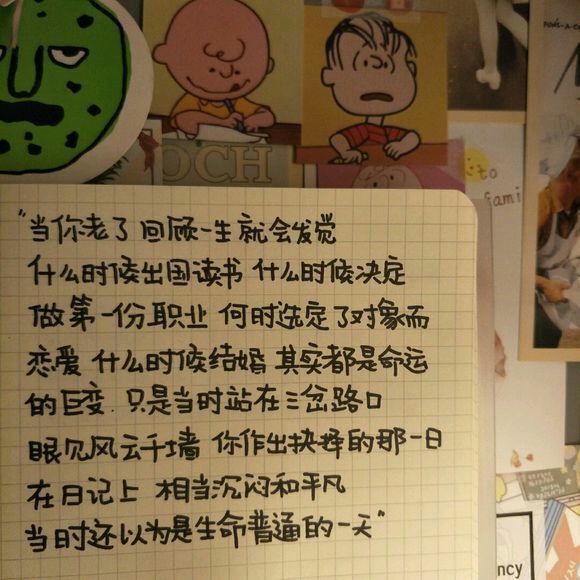 OCH
to
gami
"当你老了 回顾一生 就会发觉
什么时候出国读书 什么时候决定
做第一份职业 何时选定了对象而
恋爱 什么时候结婚 其实都是命运
的巨变.只是当时站在三岔路口
眼见风云千墙 你作出抉择的那一日
在日记上 相当沉闷和平凡
当时还以为是生命普通的一天"
ncy